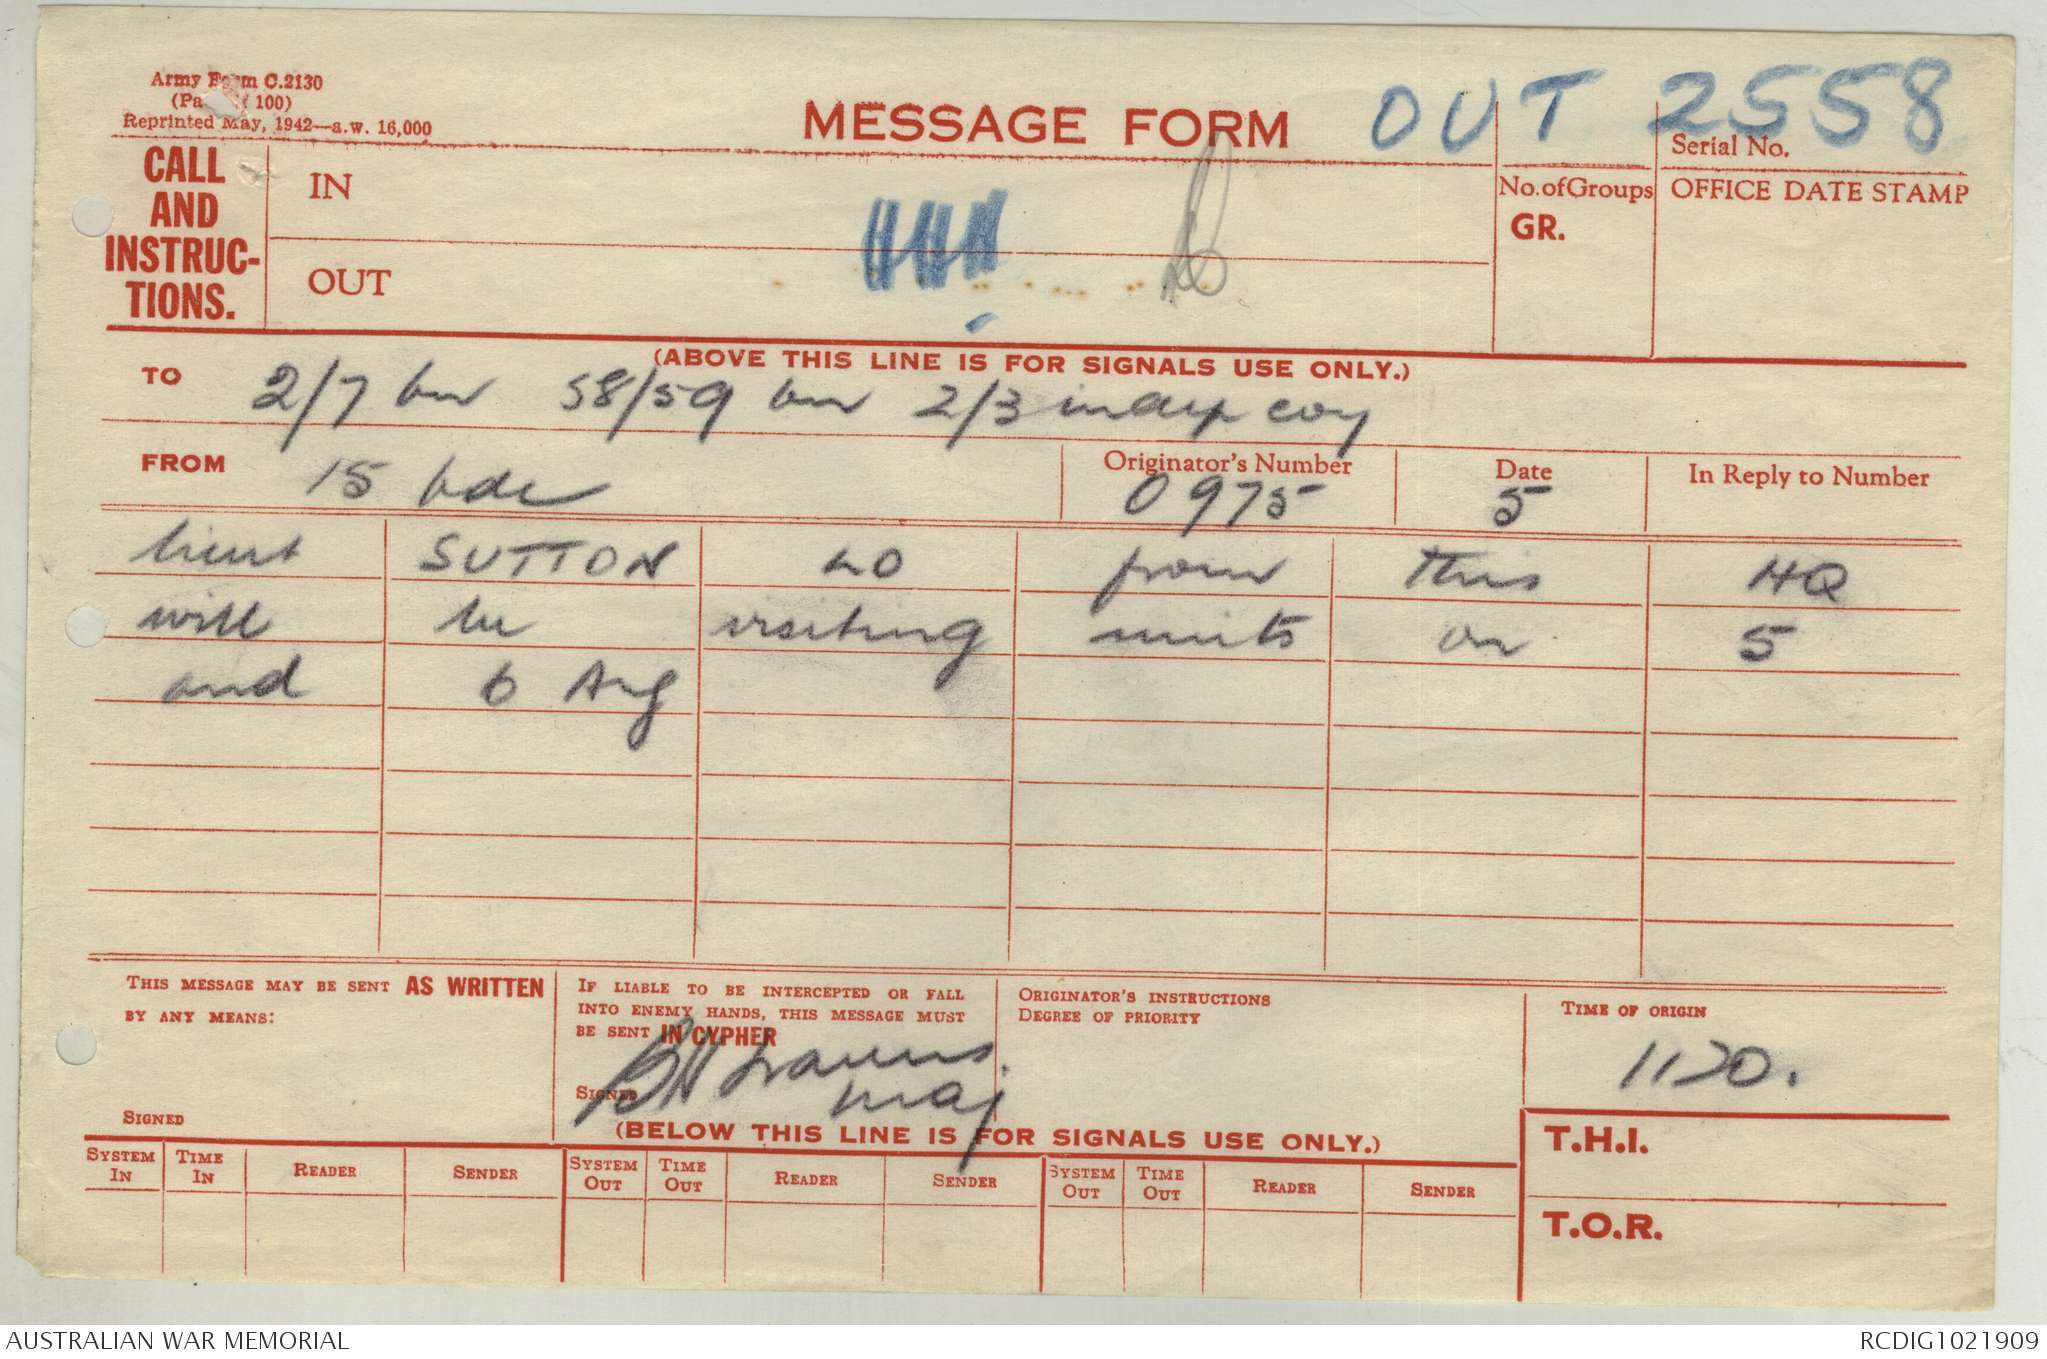 Army Form C.2130
(Pa 100)
Reprinted May, 1942—a.w. 16,000
MESSAGE FORM
OUT 2558
Serial No.
CALL AND INSTRUCTIONS.
IN
OUT
No. of Groups
GR.
OFFICE DATE STAMP
(ABOVE THIS LINE IS FOR SIGNALS USE ONLY.)
TO 2/7 bn 58/59 bn 2/3 indep coy
FROM 15 bde
Originator's Number 0975
Date 5
In Reply to Number
lieut SUTTON LO from this HQ
will be visiting units on 5
and 6 Aug
THIS MESSAGE MAY BE SENT AS WRITTEN
BY ANY MEANS:
SIGNED
IF LIABLE TO BE INTERCEPTED OR FALL
INTO ENEMY HANDS, THIS MESSAGE MUST
BE SENT IN CYPHER
SIGNED
Maj
ORIGINATOR'S INSTRUCTIONS
DEGREE OF PRIORITY
TIME OF ORIGIN
1120.
(BELOW THIS LINE IS FOR SIGNALS USE ONLY.)
T.H.I.
T.O.R.
SYSTEM IN TIME IN READER SENDER SYSTEM OUT TIME OUT READER SENDER SYSTEM OUT TIME OUT READER SENDER
AUSTRALIAN WAR MEMORIAL
RCDIG1021909